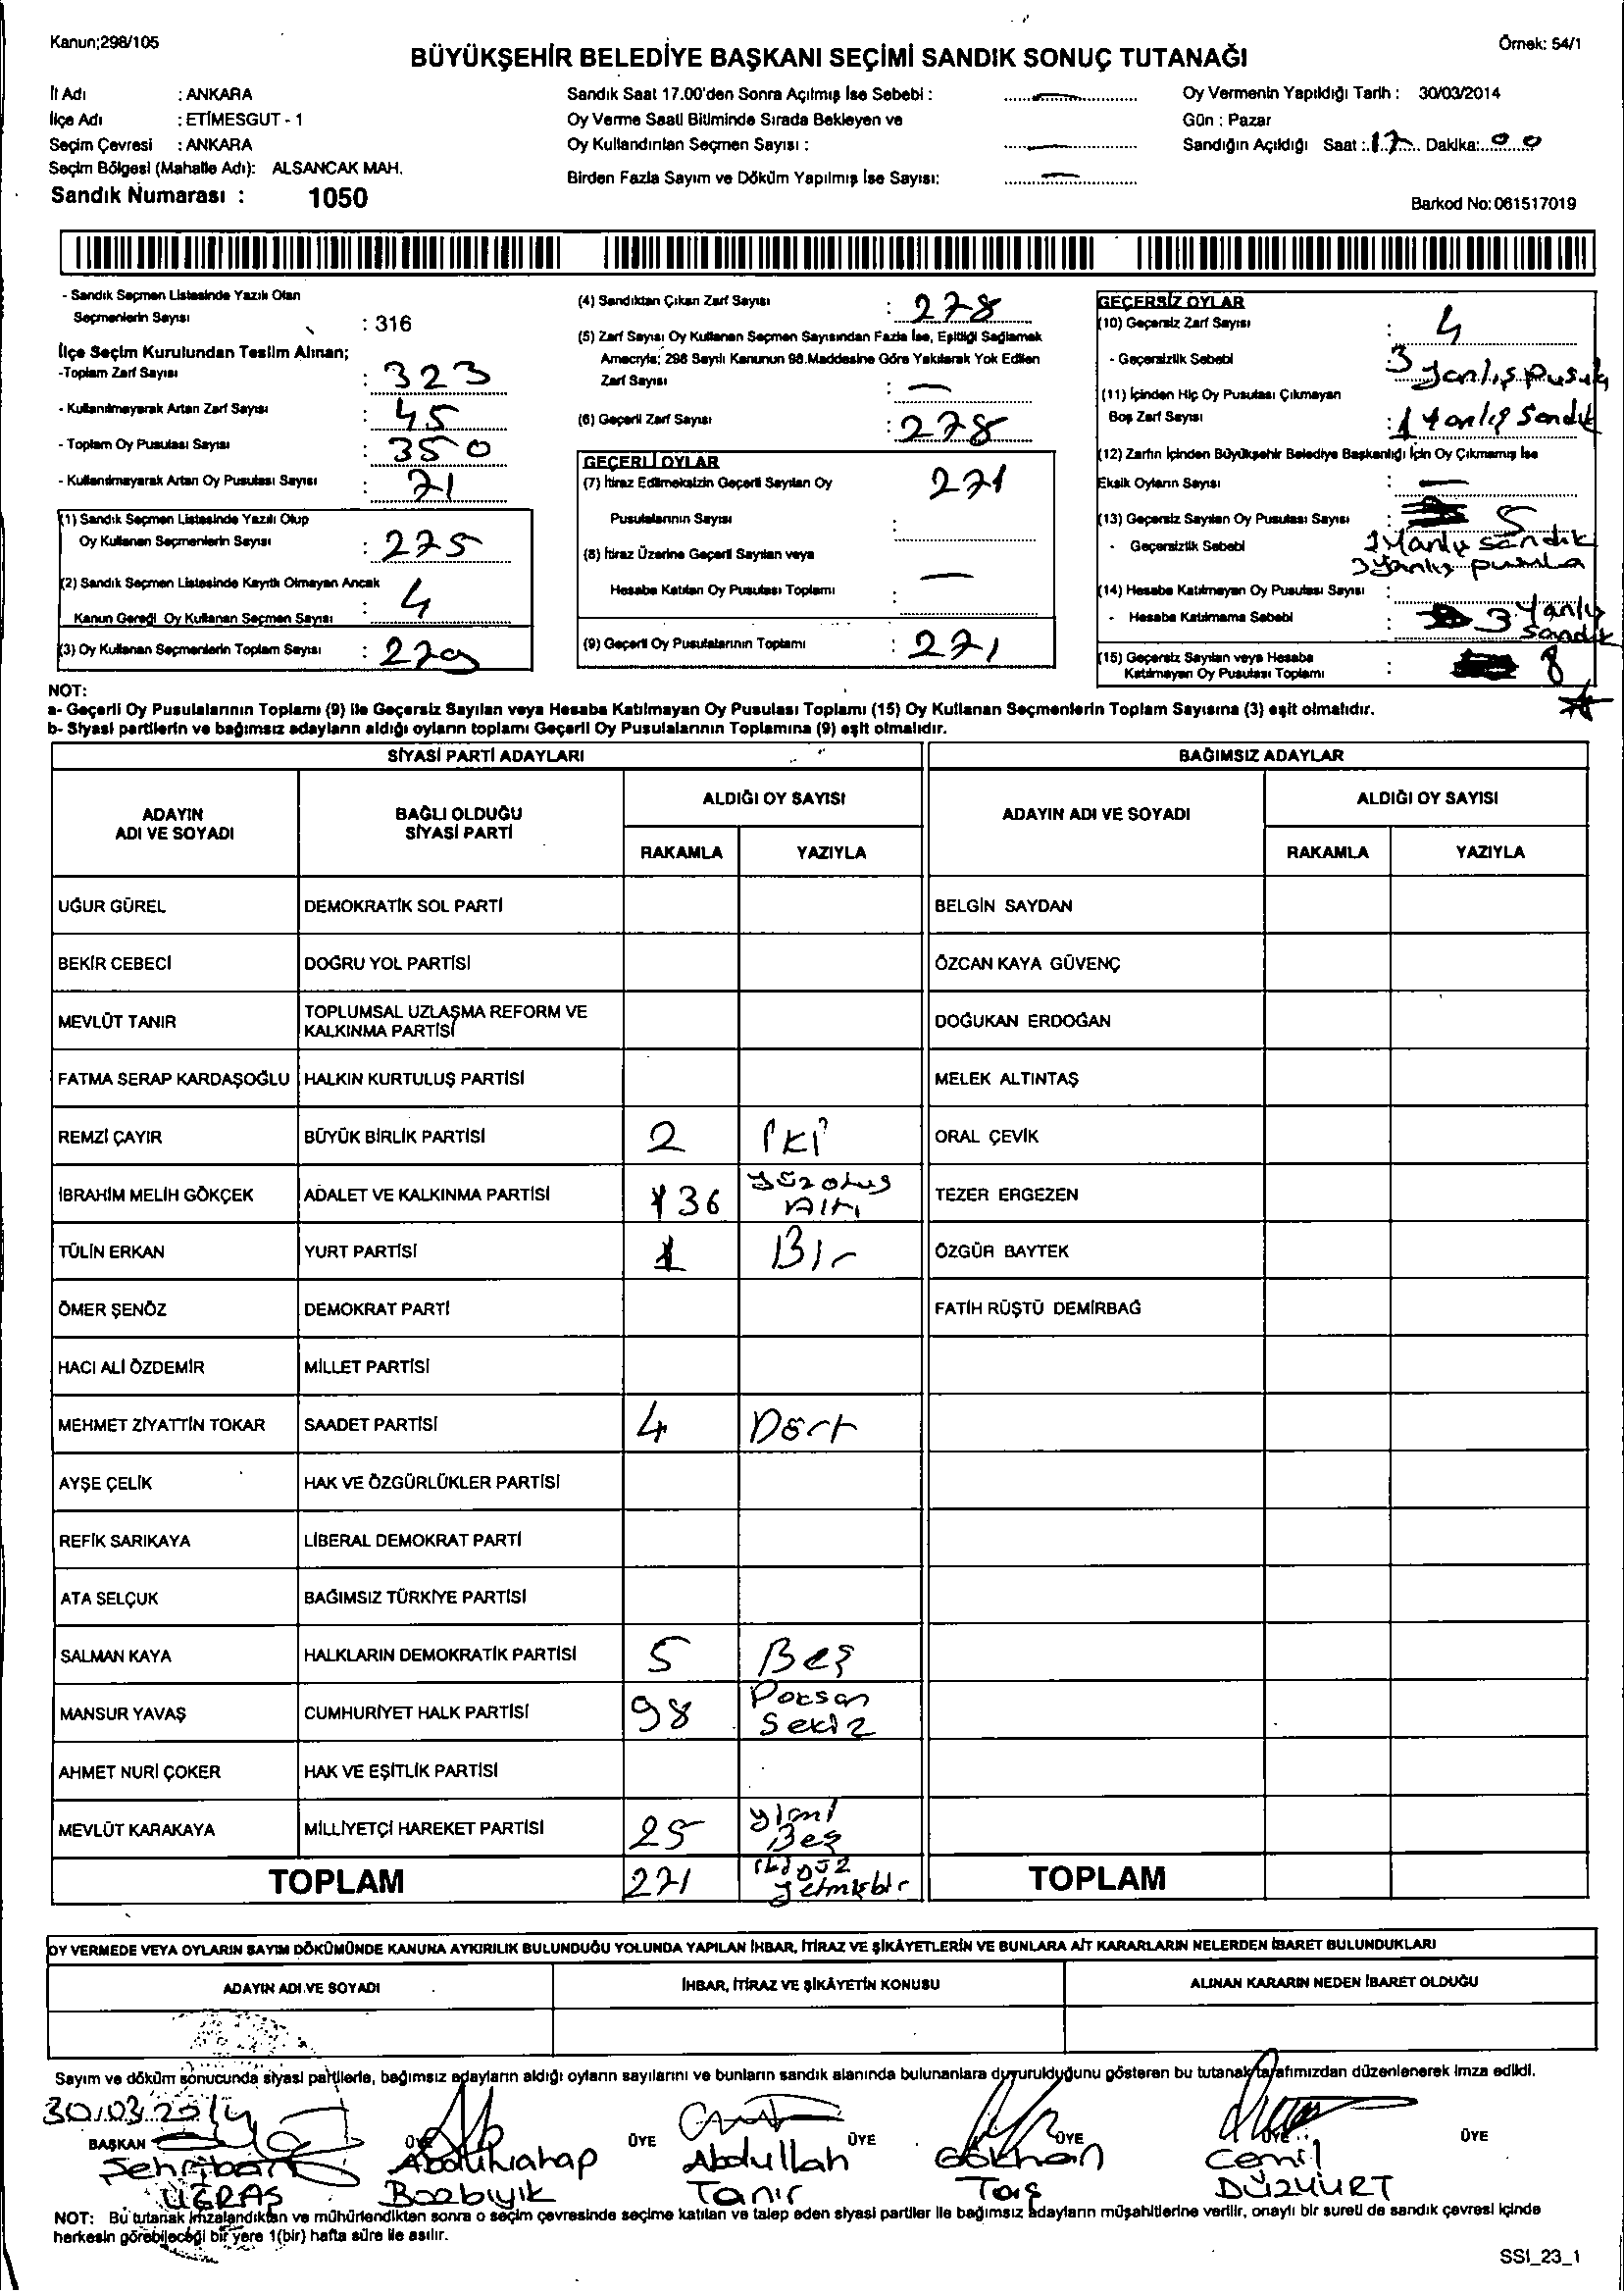 Kanun;298/105
Örnek: 54/1
BÜYÜKŞEHİR BELEDİYE BAŞKANI SEÇİMİ SANDIK SONUÇ TUTANAĞI
İl Adı : ANKARA
İlçe Adı : ETİMESGUT - 1
Seçim Çevresi : ANKARA
Seçim Bölgesi (Mahalle Adı): ALSANCAK MAH.
Sandık Numarası : 1050
Sandık Saat 17.00'den Sonra Açılmış İse Sebebi : —
Oy Verme Saati Bitiminde Sırada Bekleyen ve
Oy Kullandırılan Seçmen Sayısı : —
Birden Fazla Sayım ve Döküm Yapılmış İse Sayısı: —
Oy Vermenin Yapıldığı Tarih : 30/03/2014
Gün : Pazar
Sandığın Açıldığı Saat :.17... Dakika:..00
Barkod No:061517019
- Sandık Seçmen Listesinde Yazılı Olan
Seçmenlerin Sayısı : 316
İlçe Seçim Kurulundan Teslim Alınan;
-Toplam Zarf Sayısı : 323
- Kullanılmayarak Artan Zarf Sayısı : 45
- Toplam Oy Pusulası Sayısı : 350
- Kullanılmayarak Artan Oy Pusulası Sayısı : 71
(1) Sandık Seçmen Listesinde Yazılı Olup
Oy Kullanan Seçmenlerin Sayısı : 275
(2) Sandık Seçmen Listesinde Kayıtlı Olmayan Ancak
Kanun Gereği Oy Kullanan Seçmen Sayısı : 4
(3) Oy Kullanan Seçmenlerin Toplam Sayısı : 279
(4) Sandıktan Çıkan Zarf Sayısı : 278
(5) Zarf Sayısı Oy Kullanan Seçmen Sayısından Fazla İse, Eşitliği Sağlamak
Amacıyla; 298 Sayılı Kanunun 98.Maddesine Göre Yakılarak Yok Edilen
Zarf Sayısı : —
(6) Geçerli Zarf Sayısı : 278
GEÇERLİ OYLAR
(7) İtiraz Edilmeksizin Geçerli Sayılan Oy 271
Pusulalarının Sayısı :
(8) İtiraz Üzerine Geçerli Sayılan veya —
Hesaba Katılan Oy Pusulası Toplamı :
(9) Geçerli Oy Pusulalarının Toplamı : 271
GEÇERSİZ OYLAR
(10) Geçersiz Zarf Sayısı : 4
- Geçersizlik Sebebi : 3 Yanlış pusula
(11) İçinden Hiç Oy Pusulası Çıkmayan
Boş Zarf Sayısı : 1 Yanlış Sandık
(12) Zarfın İçinden Büyükşehir Belediye Başkanlığı İçin Oy Çıkmamış İse
Eksik Oyların Sayısı : —
(13) Geçersiz Sayılan Oy Pusulası Sayısı : 5
- Geçersizlik Sebebi Yanlış Sandık
3 Yanlış pusula
(14) Hesaba Katılmayan Oy Pusulası Sayısı :
- Hesaba Katılmama Sebebi : 3 Yanlış
sandık
(15) Geçersiz Sayılan veya Hesaba
Katılmayan Oy Pusulası Toplamı : 8
NOT:
a- Geçerli Oy Pusulalarının Toplamı (9) ile Geçersiz Sayılan veya Hesaba Katılmayan Oy Pusulası Toplamı (15) Oy Kullanan Seçmenlerin Toplam Sayısına (3) eşit olmalıdır.
b- Siyasi partilerin ve bağımsız adayların aldığı oyların toplamı Geçerli Oy Pusulalarının Toplamına (9) eşit olmalıdır.
SİYASİ PARTİ ADAYLARI BAĞIMSIZ ADAYLAR
ADAYIN ADI VE SOYADI BAĞLI OLDUĞU SİYASİ PARTİ ALDIĞI OY SAYISI ADAYIN ADI VE SOYADI ALDIĞI OY SAYISI
RAKAMLA YAZIYLA RAKAMLA YAZIYLA
UĞUR GÜREL DEMOKRATİK SOL PARTİ BELGİN SAYDAN
BEKİR CEBECİ DOĞRU YOL PARTİSİ ÖZCAN KAYA GÜVENÇ
MEVLÜT TANIR TOPLUMSAL UZLAŞMA REFORM VE KALKINMA PARTİSİ DOĞUKAN ERDOĞAN
FATMA SERAP KARDAŞOĞLU HALKIN KURTULUŞ PARTİSİ MELEK ALTINTAŞ
REMZİ ÇAYIR BÜYÜK BİRLİK PARTİSİ 2 İKİ ORAL ÇEVİK
İBRAHİM MELİH GÖKÇEK ADALET VE KALKINMA PARTİSİ 136 Yüzotuz Altı TEZER ERGEZEN
TÜLİN ERKAN YURT PARTİSİ 1 Bir ÖZGÜR BAYTEK
ÖMER ŞENÖZ DEMOKRAT PARTİ FATİH RÜŞTÜ DEMİRBAĞ
HACI ALİ ÖZDEMİR MİLLET PARTİSİ
MEHMET ZİYATTİN TOKAR SAADET PARTİSİ 4 Dört
AYŞE ÇELİK HAK VE ÖZGÜRLÜKLER PARTİSİ
REFİK SARIKAYA LİBERAL DEMOKRAT PARTİ
ATA SELÇUK BAĞIMSIZ TÜRKİYE PARTİSİ
SALMAN KAYA HALKLARIN DEMOKRATİK PARTİSİ 5 Beş
MANSUR YAVAŞ CUMHURİYET HALK PARTİSİ 98 Doksan Sekiz
AHMET NURİ ÇOKER HAK VE EŞİTLİK PARTİSİ
MEVLÜT KARAKAYA MİLLİYETÇİ HAREKET PARTİSİ 25 Yirmi Beş
TOPLAM 271 ikiyüz yetmişbir TOPLAM
OY VERMEDE VEYA OYLARIN SAYIM DÖKÜMÜNDE KANUNA AYKIRILIK BULUNDUĞU YOLUNDA YAPILAN İHBAR, İTİRAZ VE ŞİKÂYETLERİN VE BUNLARA AİT KARARLARIN NELERDEN İBARET BULUNDUKLARI
ADAYIN ADI VE SOYADI İHBAR, İTİRAZ VE ŞİKÂYETİN KONUSU ALINAN KARARIN NEDEN İBARET OLDUĞU
Sayım ve döküm sonucunda siyasi partilerle, bağımsız adayların aldığı oyların sayılarını ve bunların sandık alanında bulunanlara duyurulduğunu gösteren bu tutanak tarafımızdan düzenlenerek imza edildi.
30.03.2014
BAŞKAN ÜYE ÜYE ÜYE ÜYE ÜYE ÜYE
Şehriban Abdulvahap Abdullah Gökhan Cemil
UĞRAŞ Bozbıyık Tanır Taş DÜZYURT
NOT: Bu tutanak imzalandıktan ve mühürlendikten sonra o seçim çevresinde seçime katılan ve talep eden siyasi partiler ile bağımsız adayların müşahitlerine verilir, onaylı bir sureti de sandık çevresi içinde
herkesin görebileceği bir yere 1(bir) hafta süre ile asılır.
SSI_23_1